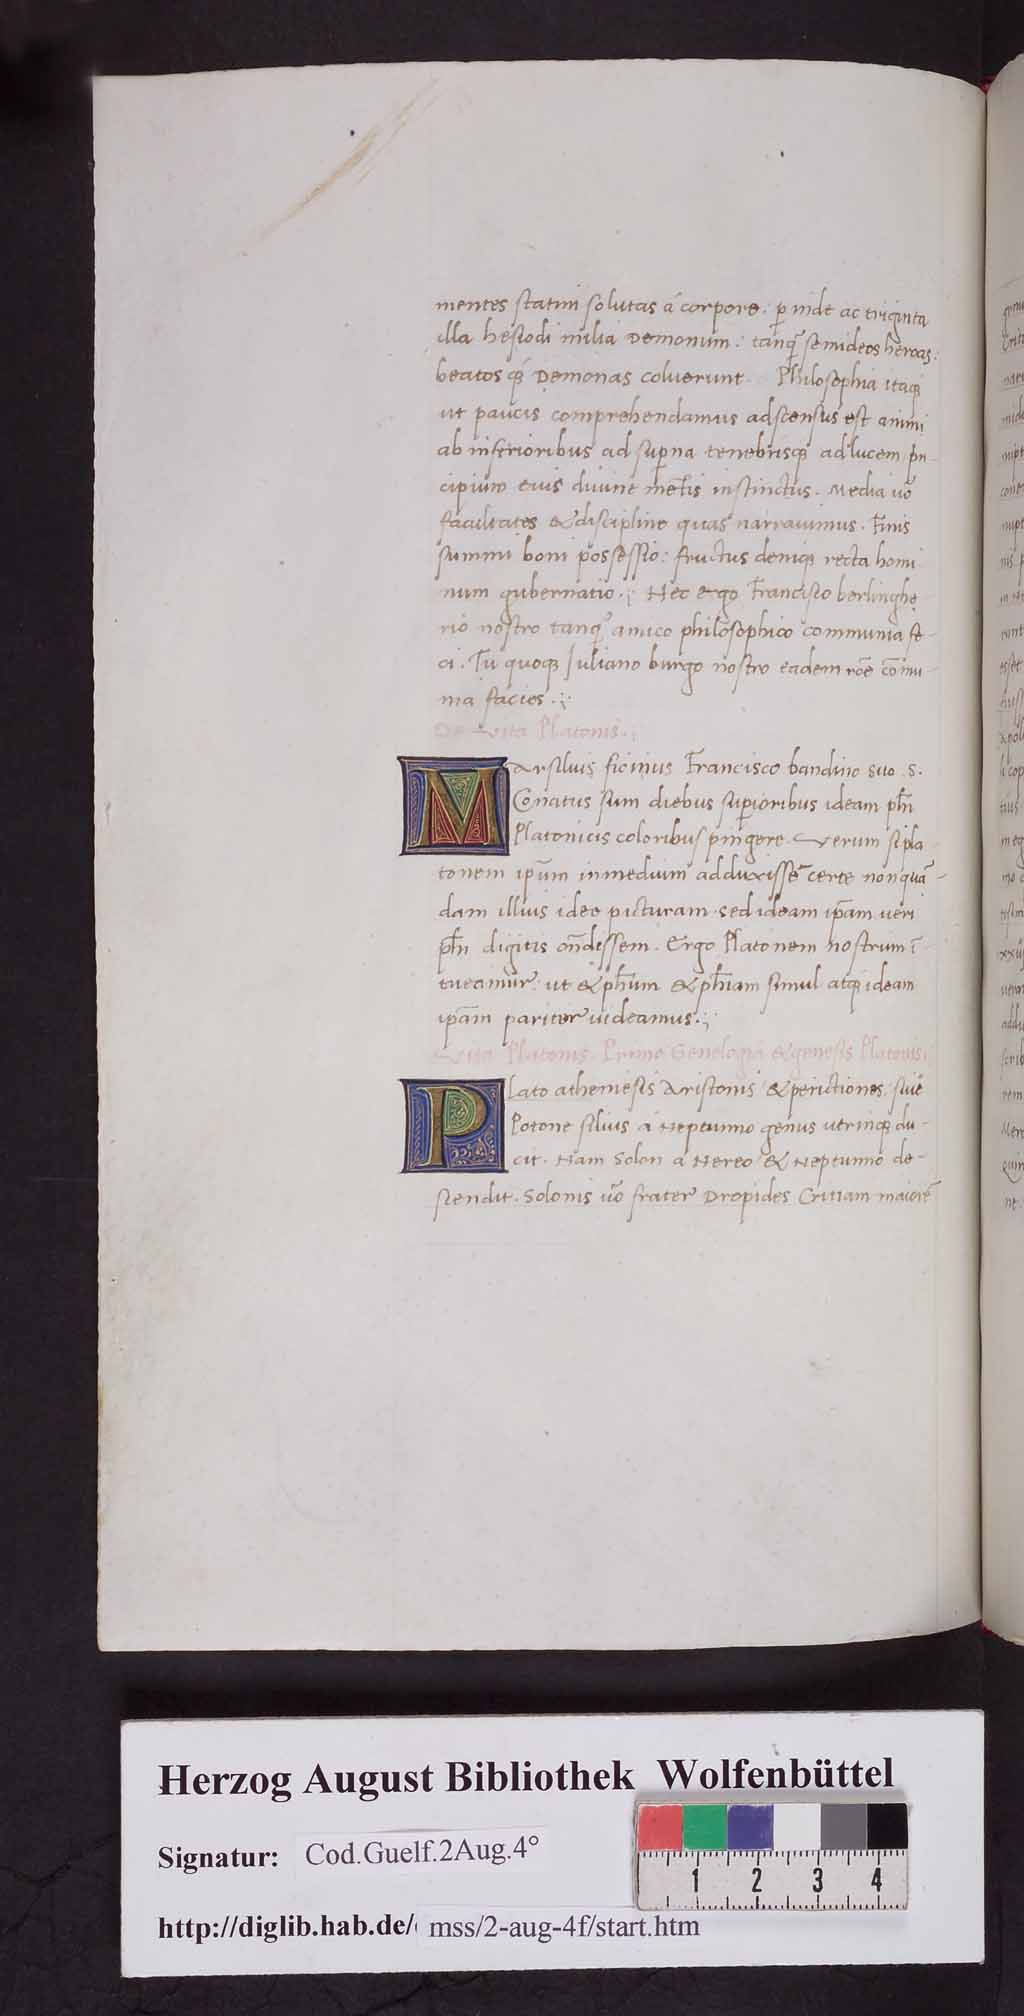 mentes statim solutas á corpore: ꝑinde ac triginta
illa hesiodi milia Demonum: tanq̃ semideos heroas:
beatos q́ꝫ Demonas coluerunt. Philosophia itaqꝫ
ut paucis comprehendamus adscensus est animi
ab inferioribus ad suꝑna tenebrisqꝫ ad lucem pn̄-
cipium eius diuine mētis instinctus. Media uō
facultates & discipline quas narrauimus. Finis
summi boni possessio: fructus deniqꝫ recta homi
num gubernatio. Hec ergo Francisco berlinghe
rio nostro tanq̃ amico philosophico communia fe-
ci. Tu quoqꝫ Iuliano burgo nostro eadem rōe cōmu-
nia facies.
De Vita Platonis.
MArsilius ficinus Francisco bandino suo .S.
Conatus sum diebus suꝑioribus ideam phī
Platonicis coloribus pingere. Verum si pla
tonem ip̄um in medium adduxissē certe non quā-
dam illius idee picturam sed ideam ip̄am ueri
phī digitis on̄dissem. Ergo Platonem nostrum ī-
tueamur: ut & ph̄um & ph̄iam simul atqꝫ ideam
ip̄am pariter uideamus.
Vita Platonis. Primo Genologia & genesis Platonis.
PLato atheniēsis Aristonis & perictiones, siue
Potone filius á Neptunno genus utrinqꝫ du-
cit. Nam Solon a Nereo & Neptunno de-
scendit. Solonis uō frater Dropides Critiam maiorē
Herzog August Bibliothek Wolfenbüttel
Signatur: Cod.Guelf.2Aug.4°
1 2 3 4
http://diglib.hab.de/ mss/2-aug-4f/start.htm